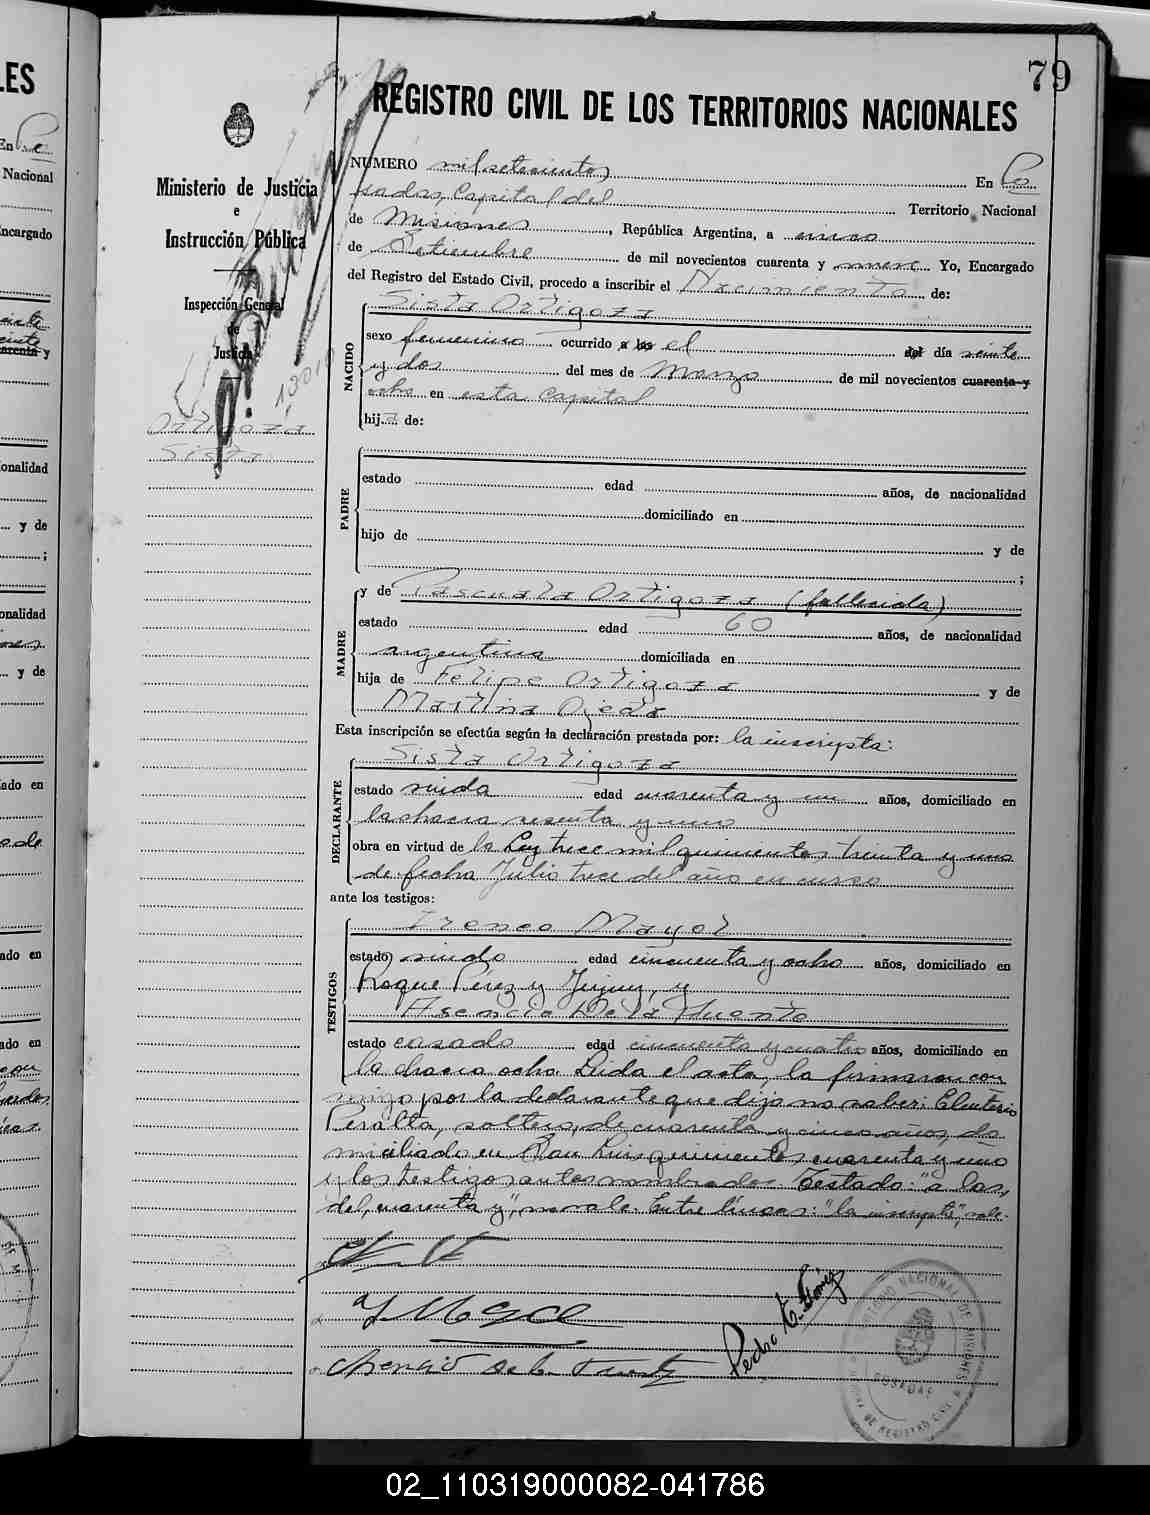 79
REGISTRO CIVIL DE LOS TERRITORIOS NACIONALES
Ministerio de Justicia
e
Instrucción Pública
Inspección General
de
Justicia
Ortigoza
Sista
NUMERO mil setecientos En Po
sadas, Capital del Territorio Nacional
de Misiones, República Argentina, a cinco
de Setiembre de mil novecientos cuarenta y nueve Yo, Encargado
del Registro del Estado Civil, procedo a inscribir el Nacimiento de:
NACIDO
Sista Ortigoza
sexo femenino ocurrido a las el del día veinte
y dos del mes de Marzo de mil novecientos cuarenta y
ocho en esta Capital
hija de:
PADRE
estado edad años, de nacionalidad
domiciliado en
hijo de y de
;
MADRE
y de Pascuala Ortigoza (fallecida)
estado edad 60 años, de nacionalidad
argentina domiciliada en
hija de Felipe Ortigoza y de
Martina Ojeda
Esta inscripción se efectúa según la declaración prestada por: la inscripta:
DECLARANTE
Sista Ortigoza
estado viuda edad cuarenta y un años, domiciliado en
la chacra sesenta y uno
obra en virtud de la Ley trece mil quinientos treinta y uno
de fecha Julio trece del año en curso
ante los testigos:
TESTIGOS
Ireneo Mayol
estado viudo edad cincuenta y ocho años, domiciliado en
Roque Pérez y Jujuy, y
Asencio De la Fuente
estado casado edad cincuenta y cuatro años, domiciliado en
la chacra ocho. Leida el acta, la firmaron con
migo por la declarante que dijo no saber: Eleuterio
Peralta, soltero, de cuarenta y cinco años, do
miciliado en San Luis quinientos cuarenta y uno
y los testigos antes nombrados. Testado: "a las,
del, cuarenta y", no vale. Entre líneas: "la inscripta", vale.
Pedro
TERRITORIO NACIONAL DE MISIONES
POSADAS
DE REGISTRO CIVIL
02_110319000082-041786
LES
En
Nacional
ncargado
cuarenta y
onalidad
y de
;
onalidad
y de
ado en
ado en
ado en